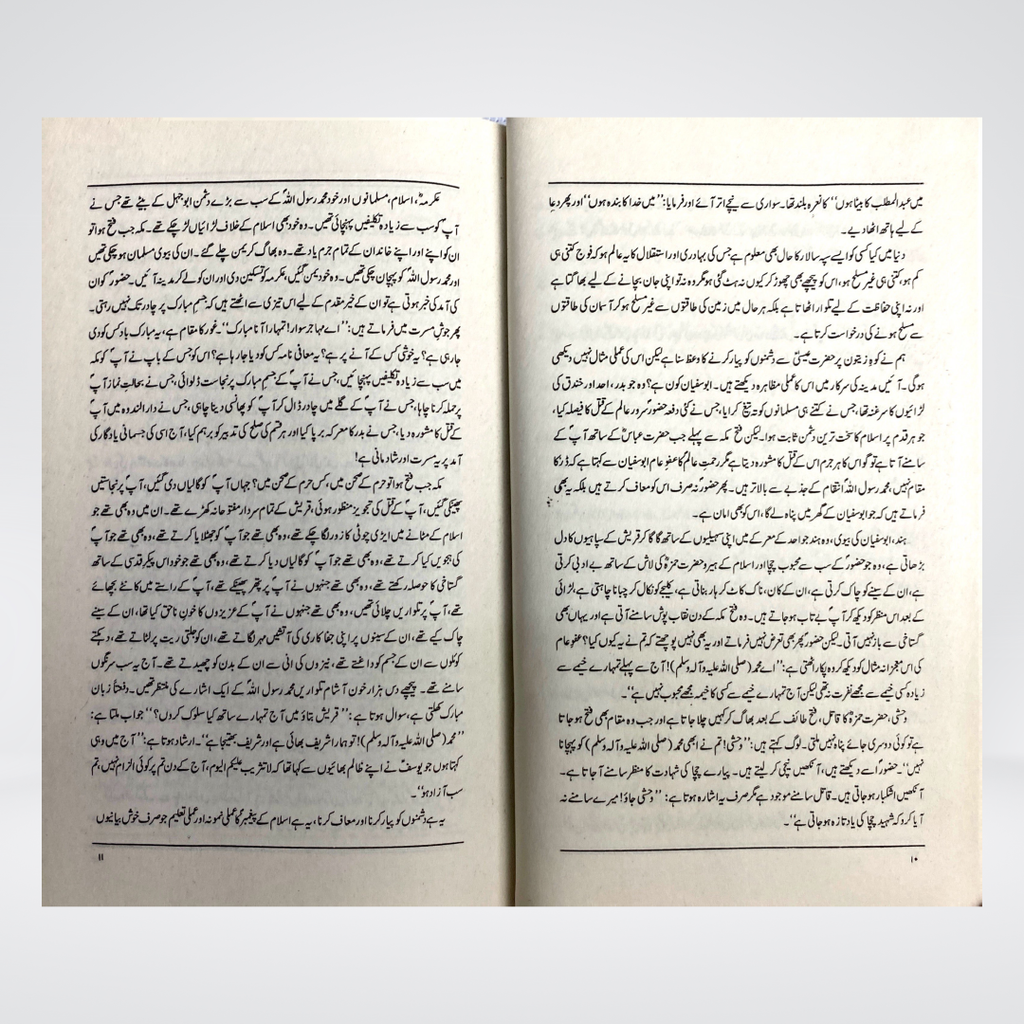 میں عبدالمطلب کا بیٹا ہوں‘‘ کا نعرہ بلند تھا۔ سواری سے نیچے اتر آئے اور فرمایا: ’’میں خدا کا بندہ ہوں‘‘ اور پھر دعا
کے لیے ہاتھ اٹھا دیے۔
دنیا میں کیا کسی کو ایسے سپہ سالار کا حال بھی معلوم ہے جس کی بہادری اور استقلال کا یہ عالم ہو کہ فوج کتنی ہی
کم ہو، کتنی ہی غیر مسلح ہو، اس کو پیچھے بھی چھوڑ کر کیوں نہ ہٹ گئی ہو مگر وہ نہ تو اپنی جان بچانے کے لیے بھاگتا ہے
اور نہ اپنی حفاظت کے لیے تلوار اٹھاتا ہے بلکہ ہر حال میں زمین کی طاقتوں سے غیر مسلح ہو کر آسمان کی طاقتوں
سے مسلح ہونے کی درخواست کرتا ہے۔
ہم نے کوہِ زیتون پر حضرت عیسیٰؑ سے دشمنوں کو پیار کرنے کا وعظ سنا ہے لیکن اس کی عملی مثال نہیں دیکھی
ہوگی۔ آئیں مدینہ کی سرکار میں اس کا عملی مظاہرہ دیکھتے ہیں۔ ابوسفیان کون ہے؟ وہ جو بدر، احد اور خندق کی
لڑائیوں کا سرغنہ تھا، جس نے کتنے ہی مسلمانوں کو تہ تیغ کرایا، جس نے کئی دفعہ حضورؐ سرور عالم کے قتل کا فیصلہ کیا،
جو ہر قدم پر اسلام کا سخت ترین دشمن ثابت ہوا۔ لیکن فتح مکہ سے پہلے جب حضرت عباسؓ کے ساتھ آپؐ کے
سامنے آتا ہے تو گو اس کا ہر جرم اس کے قتل کا مشورہ دیتا ہے مگر رحمتِ عالمؐ کا عفو عام ابوسفیان سے کہتا ہے کہ ڈر کا
مقام نہیں، محمد رسول اللہؐ انتقام کے جذبے سے بالاتر ہیں۔ پھر حضورؐ نہ صرف اس کو معاف کرتے ہیں بلکہ یہ بھی
فرماتے ہیں کہ جو ابوسفیان کے گھر میں پناہ لے گا، اس کو بھی امان ہے۔
ہند، ابوسفیان کی بیوی، وہ ہند جو احد کے معرکے میں اپنی سہیلیوں کے ساتھ گا گا کر قریش کے سپاہیوں کا دل
بڑھاتی ہے، وہ جو حضورؐ کے سب سے محبوب چچا اور اسلام کے ہیرو حضرت حمزہؓ کی لاش کے ساتھ بے ادبی کرتی
ہے، ان کے سینے کو چاک کرتی ہے، ان کے کان، ناک کاٹ کر ہار بناتی ہے، کلیجے کو نکال کر چبانا چاہتی ہے، لڑائی
کے بعد اس منظر کو دیکھ کر آپؐ بے تاب ہو جاتے ہیں۔ وہ فتح مکہ کے دن نقاب پوش سامنے آتی ہے اور یہاں بھی
گستاخی سے باز نہیں آتی۔ لیکن حضورؐ پھر بھی تعرض نہیں فرماتے اور یہ بھی نہیں پوچھتے کہ تم نے یہ کیوں کیا؟ عفو عام
کی اس معجزانہ مثال کو دیکھ کر وہ پکار اٹھتی ہے: ’’اے محمد (صلی اللہ علیہ وآلہ وسلم)! آج سے پہلے تمہارے خیمے سے
زیادہ کسی خیمے سے مجھے نفرت نہ تھی لیکن آج تمہارے خیمے سے کسی کا خیمہ مجھے محبوب نہیں ہے‘‘۔
وحشی، حضرت حمزہؓ کا قاتل، فتح طائف کے بعد بھاگ کر کہیں چلا جاتا ہے اور جب وہ مقام بھی فتح ہو جاتا
ہے تو کوئی دوسری جائے پناہ نہیں ملتی۔ لوگ کہتے ہیں: ’’وحشی! تم نے ابھی محمد (صلی اللہ علیہ وآلہ وسلم) کو پہچانا
نہیں‘‘۔ حضورؐ اسے دیکھتے ہیں، آنکھیں نیچی کر لیتے ہیں۔ پیارے چچا کی شہادت کا منظر سامنے آ جاتا ہے۔
آنکھیں اشکبار ہو جاتی ہیں۔ قاتل سامنے موجود ہے مگر صرف یہ اشارہ ہوتا ہے: ’’وحشی جاؤ! میرے سامنے نہ
آیا کرو کہ شہید چچا کی یاد تازہ ہو جاتی ہے‘‘۔
۱۰
عکرمہؓ، اسلام، مسلمانوں اور خود محمد رسول اللہؐ کے سب سے بڑے دشمن ابوجہل کے بیٹے تھے جس نے
آپؐ کو سب سے زیادہ تکلیفیں پہنچائی تھیں۔ وہ خود بھی اسلام کے خلاف لڑائیاں لڑ چکے تھے۔ مکہ جب فتح ہوا تو
ان کو اپنے اور اپنے خاندان کے تمام جرم یاد تھے۔ وہ بھاگ کر یمن چلے گئے۔ ان کی بیوی مسلمان ہو چکی تھیں
اور محمد رسول اللہؐ کو پہچان چکی تھیں۔ وہ خود یمن گئیں، عکرمہ کو تسکین دی اور ان کو لے کر مدینہ آئیں۔ حضورؐ کو ان
کی آمد کی خبر ہوتی ہے تو ان کے خیر مقدم کے لیے اس تیزی سے اٹھتے ہیں کہ جسمِ مبارک پر چادر تک نہیں رہتی۔
پھر جوشِ مسرت میں فرماتے ہیں: ’’اے مہاجر سوار! تمہارا آنا مبارک‘‘۔ غور کا مقام ہے، یہ مبارک باد کس کو دی
جا رہی ہے؟ یہ خوشی کس کے آنے پر ہے؟ یہ معافی نامہ کس کو دیا جا رہا ہے؟ اس کو جس کے باپ نے آپؐ کو مکہ
میں سب سے زیادہ تکلیفیں پہنچائیں، جس نے آپؐ کے جسم مبارک پر نجاست ڈلوائی، جس نے بحالتِ نماز آپؐ
پر حملہ کرنا چاہا، جس نے آپؐ کے گلے میں چادر ڈال کر آپؐ کو پھانسی دینا چاہی، جس نے دارالندوہ میں آپؐ
کے قتل کا مشورہ دیا، جس نے بدر کا معرکہ برپا کیا اور ہر قسم کی صلح کی تدبیر کو برہم کیا، آج اسی کی جسمانی یادگار کی
آمد پر یہ مسرت اور شادمانی ہے!
مکہ جب فتح ہوا تو حرم کے صحن میں، کس حرم کے صحن میں؟ جہاں آپؐ کو گالیاں دی گئیں، آپؐ پر نجاستیں
پھینکی گئیں، آپؐ کے قتل کی تجویز منظور ہوئی، قریش کے تمام سردار مفتوحانہ کھڑے تھے۔ ان میں وہ بھی تھے جو
اسلام کے مٹانے میں ایڑی چوٹی کا زور لگا چکے تھے، وہ بھی تھے جو آپؐ کو جھٹلایا کرتے تھے، وہ بھی تھے جو آپؐ
کی ہجویں کیا کرتے تھے، وہ بھی تھے جو آپؐ کو گالیاں دیا کرتے تھے، وہ بھی تھے جو خود اس پیکر قدسی کے ساتھ
گستاخی کا حوصلہ رکھتے تھے، وہ بھی تھے جنہوں نے آپؐ پر پتھر پھینکے تھے، آپؐ کے راستے میں کانٹے بچھائے
تھے، آپؐ پر تلواریں چلائی تھیں، وہ بھی تھے جنہوں نے آپؐ کے عزیزوں کا خونِ ناحق کیا تھا، ان کے سینے
چاک کیے تھے، ان کے سینوں پر اپنی جفاکاری کی آتشیں مہر لگاتے تھے، ان کو جلتی ریت پر لٹاتے تھے، دہکتے
کوئلوں سے ان کے جسم کو داغتے تھے، نیزوں کی انی سے ان کے بدن کو چھیدتے تھے۔ آج یہ سب سرنگوں
سامنے تھے۔ پیچھے دس ہزار خون آشام تلواریں محمد رسول اللہؐ کے ایک اشارے کی منتظر تھیں۔ دفعتاً زبان
مبارک کھلتی ہے، سوال ہوتا ہے: ’’قریش بتاؤ میں آج تمہارے ساتھ کیا سلوک کروں؟‘‘ جواب ملتا ہے:
’’محمد (صلی اللہ علیہ وآلہ وسلم)! تو ہمارا شریف بھائی ہے اور شریف بھتیجا ہے‘‘۔ ارشاد ہوتا ہے: ’’آج میں وہی
کہتا ہوں جو یوسفؑ نے اپنے ظالم بھائیوں سے کہا تھا کہ لا تثریب علیکم الیوم، آج کے دن تم پر کوئی الزام نہیں، تم
سب آزاد ہو‘‘۔
یہ ہے دشمنوں کو پیار کرنا اور معاف کرنا، یہ ہے اسلام کے پیغمبرؐ کا عملی نمونہ اور عملی تعلیم جو صرف خوش بیانیوں
۱۱